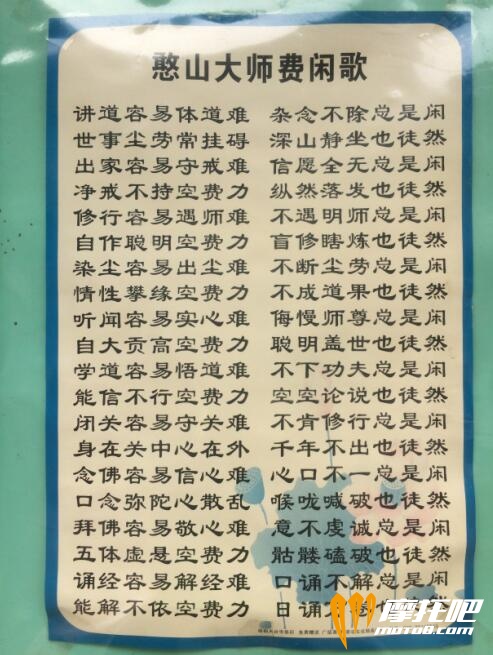 憨山大师费闲歌
讲道容易体道难 杂念不除总是闲
世事尘劳常挂碍 深山静坐也徒然
出家容易守戒难 信愿全无总是闲
净戒不持空费力 纵然落发也徒然
修行容易遇师难 不遇明师总是闲
自作聪明空费力 盲修瞎炼也徒然
染尘容易出尘难 不断尘劳总是闲
情性攀缘空费力 不成道果也徒然
听闻容易实心难 侮慢师尊总是闲
自大贡高空费力 聪明盖世也徒然
学道容易悟道难 不下功夫总是闲
能信不行空费力 空空论说也徒然
闭关容易守关难 不肯修行总是闲
身在关中心在外 千年不出也徒然
念佛容易信心难 心口不一总是闲
口念弥陀心散乱 喉咙喊破也徒然
拜佛容易敬心难 意不虔诚总是闲
五体虚悬空费力 骷髅磕破也徒然
诵经容易解经难 口诵不解总是闲
能解不依空费力 日诵
摩托吧
MOTO8.COM